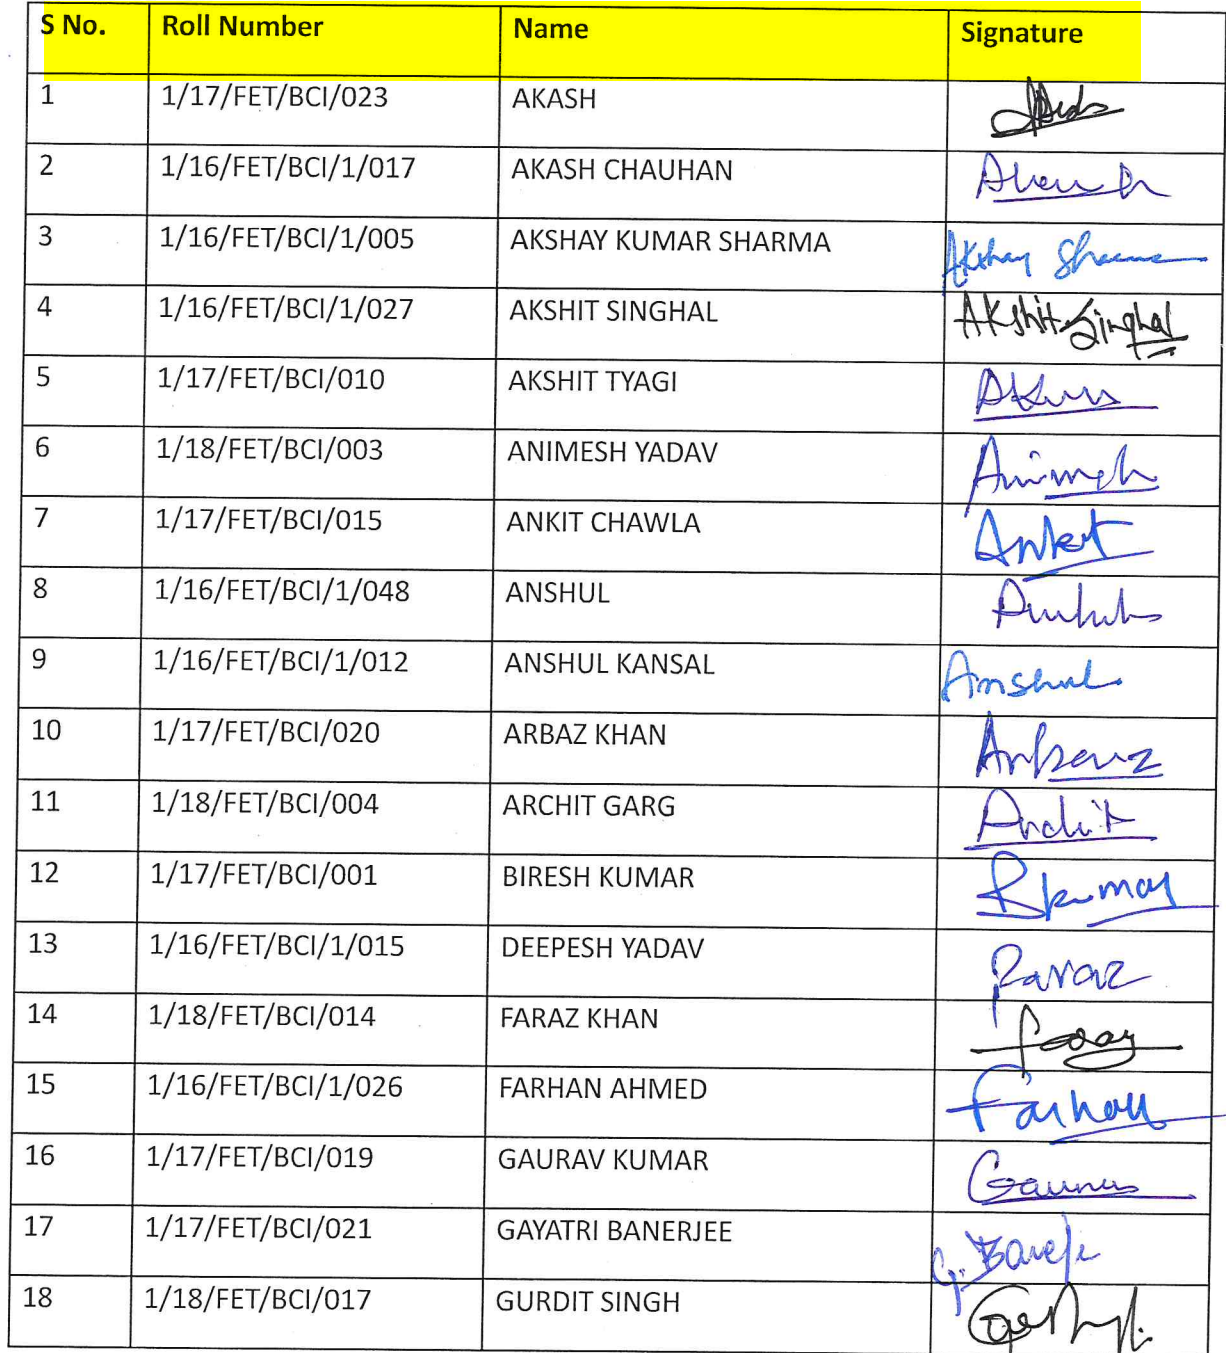 S No. Roll Number Name Signature
1 1/17/FET/BCI/023 AKASH
2 1/16/FET/BCI/1/017 AKASH CHAUHAN
3 1/16/FET/BCI/1/005 AKSHAY KUMAR SHARMA Akshay Sharma
4 1/16/FET/BCI/1/027 AKSHIT SINGHAL AKshit Singhal
5 1/17/FET/BCI/010 AKSHIT TYAGI
6 1/18/FET/BCI/003 ANIMESH YADAV Animesh
7 1/17/FET/BCI/015 ANKIT CHAWLA Ankit
8 1/16/FET/BCI/1/048 ANSHUL
9 1/16/FET/BCI/1/012 ANSHUL KANSAL Anshul
10 1/17/FET/BCI/020 ARBAZ KHAN Arbaaz
11 1/18/FET/BCI/004 ARCHIT GARG Archit
12 1/17/FET/BCI/001 BIRESH KUMAR
13 1/16/FET/BCI/1/015 DEEPESH YADAV
14 1/18/FET/BCI/014 FARAZ KHAN
15 1/16/FET/BCI/1/026 FARHAN AHMED Farhan
16 1/17/FET/BCI/019 GAURAV KUMAR Gaurav
17 1/17/FET/BCI/021 GAYATRI BANERJEE
18 1/18/FET/BCI/017 GURDIT SINGH